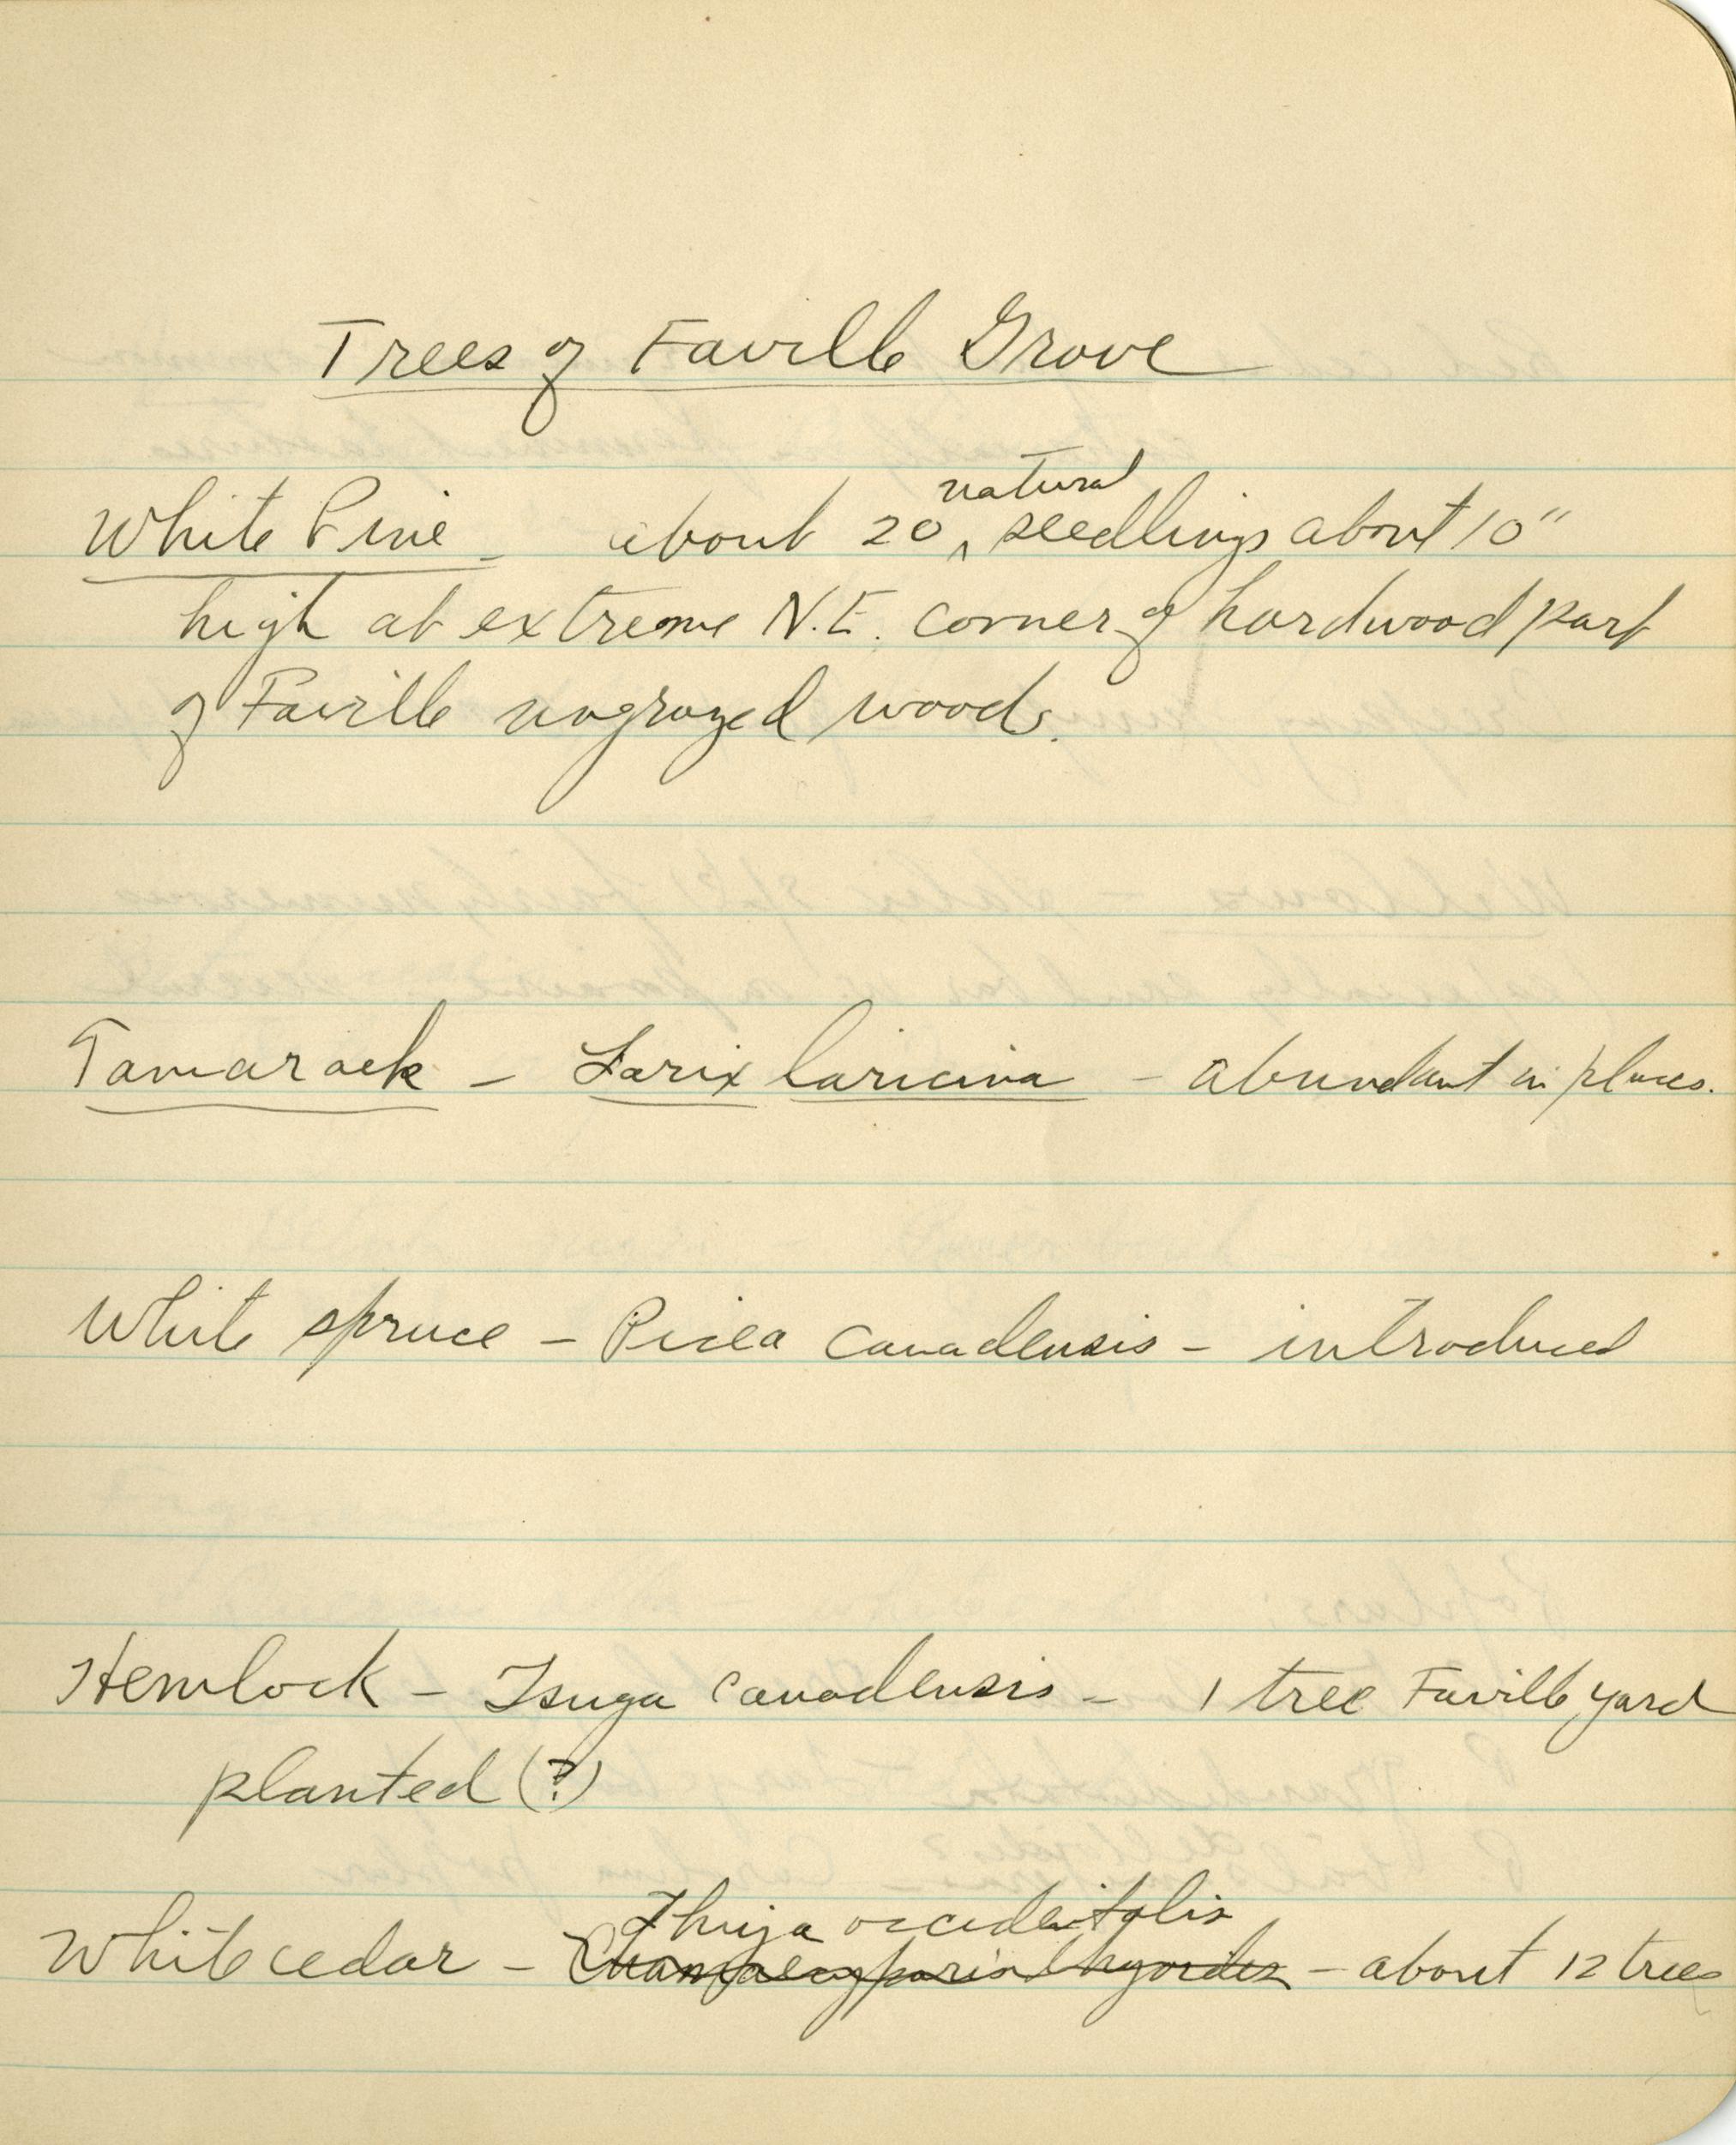 Trees of Faville Grove
White Pine - about 20 ^ natural seedlings about 10"
high at extreme N.E. corner of hardwood part
of Faville ungrazed woods.
Tamarack - Larix laricina - abundant in places.
White spruce - Picea canadensis - introduced
Hemlock - Tsuga canadensis - 1 tree Faville yard
planted (?)
Thuja occidentalis
White cedar - Chamaecyparis thyoides - about 12 trees